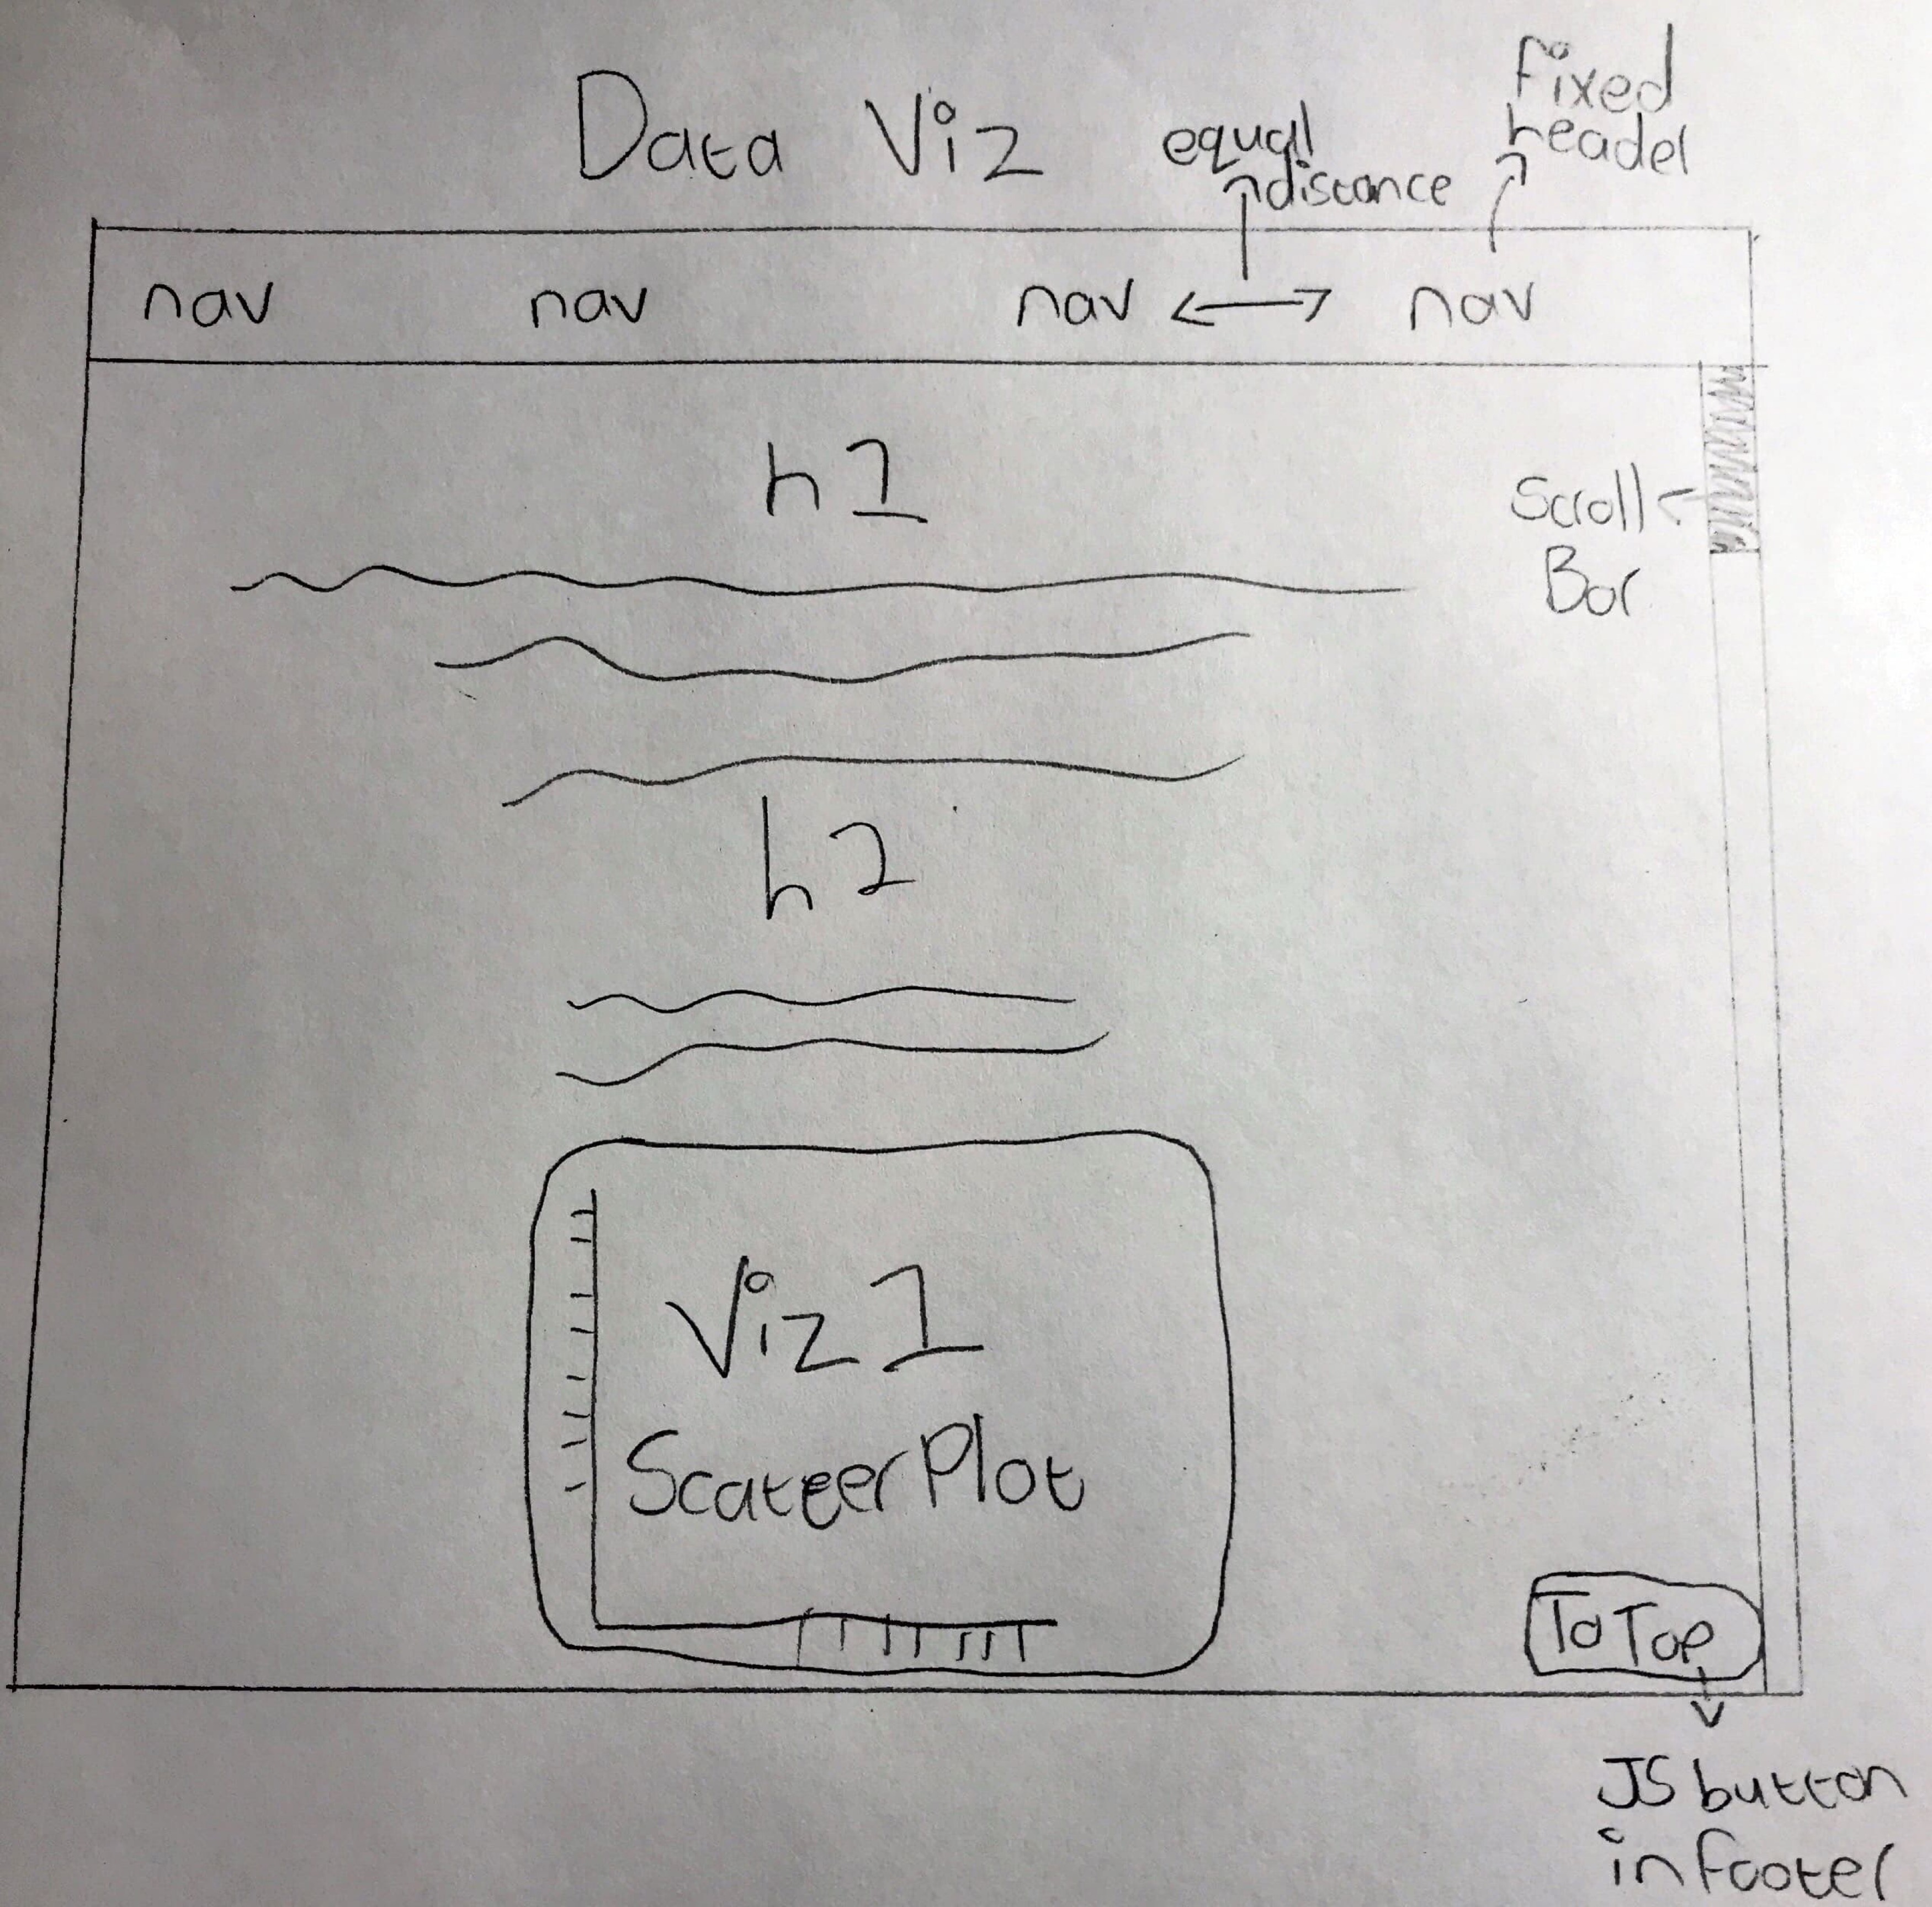 Data Viz
equal
distance
Fixed
header
nav nav nav nav
h1
Scroll
Bar
h2
Viz 1
Scatter Plot
To Top
JS button
in footer